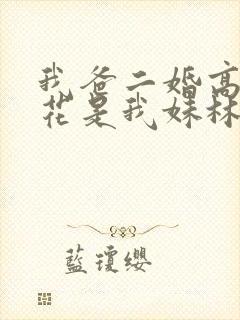 我爸二婚高
花是我妹林
藍瓊纓